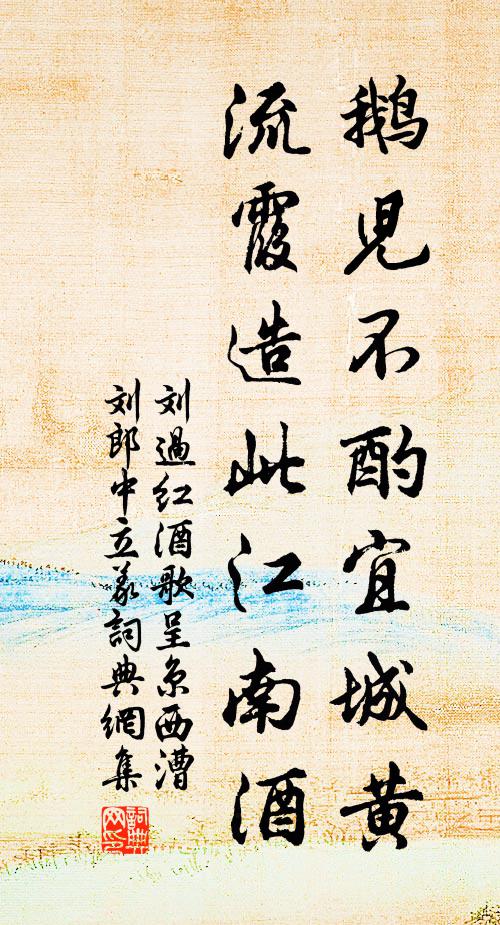 鹅児不酌宜城黄
流霞造此江南酒
刘過红酒歌呈京西漕
刘郎中立义詞典網集
詞典网印